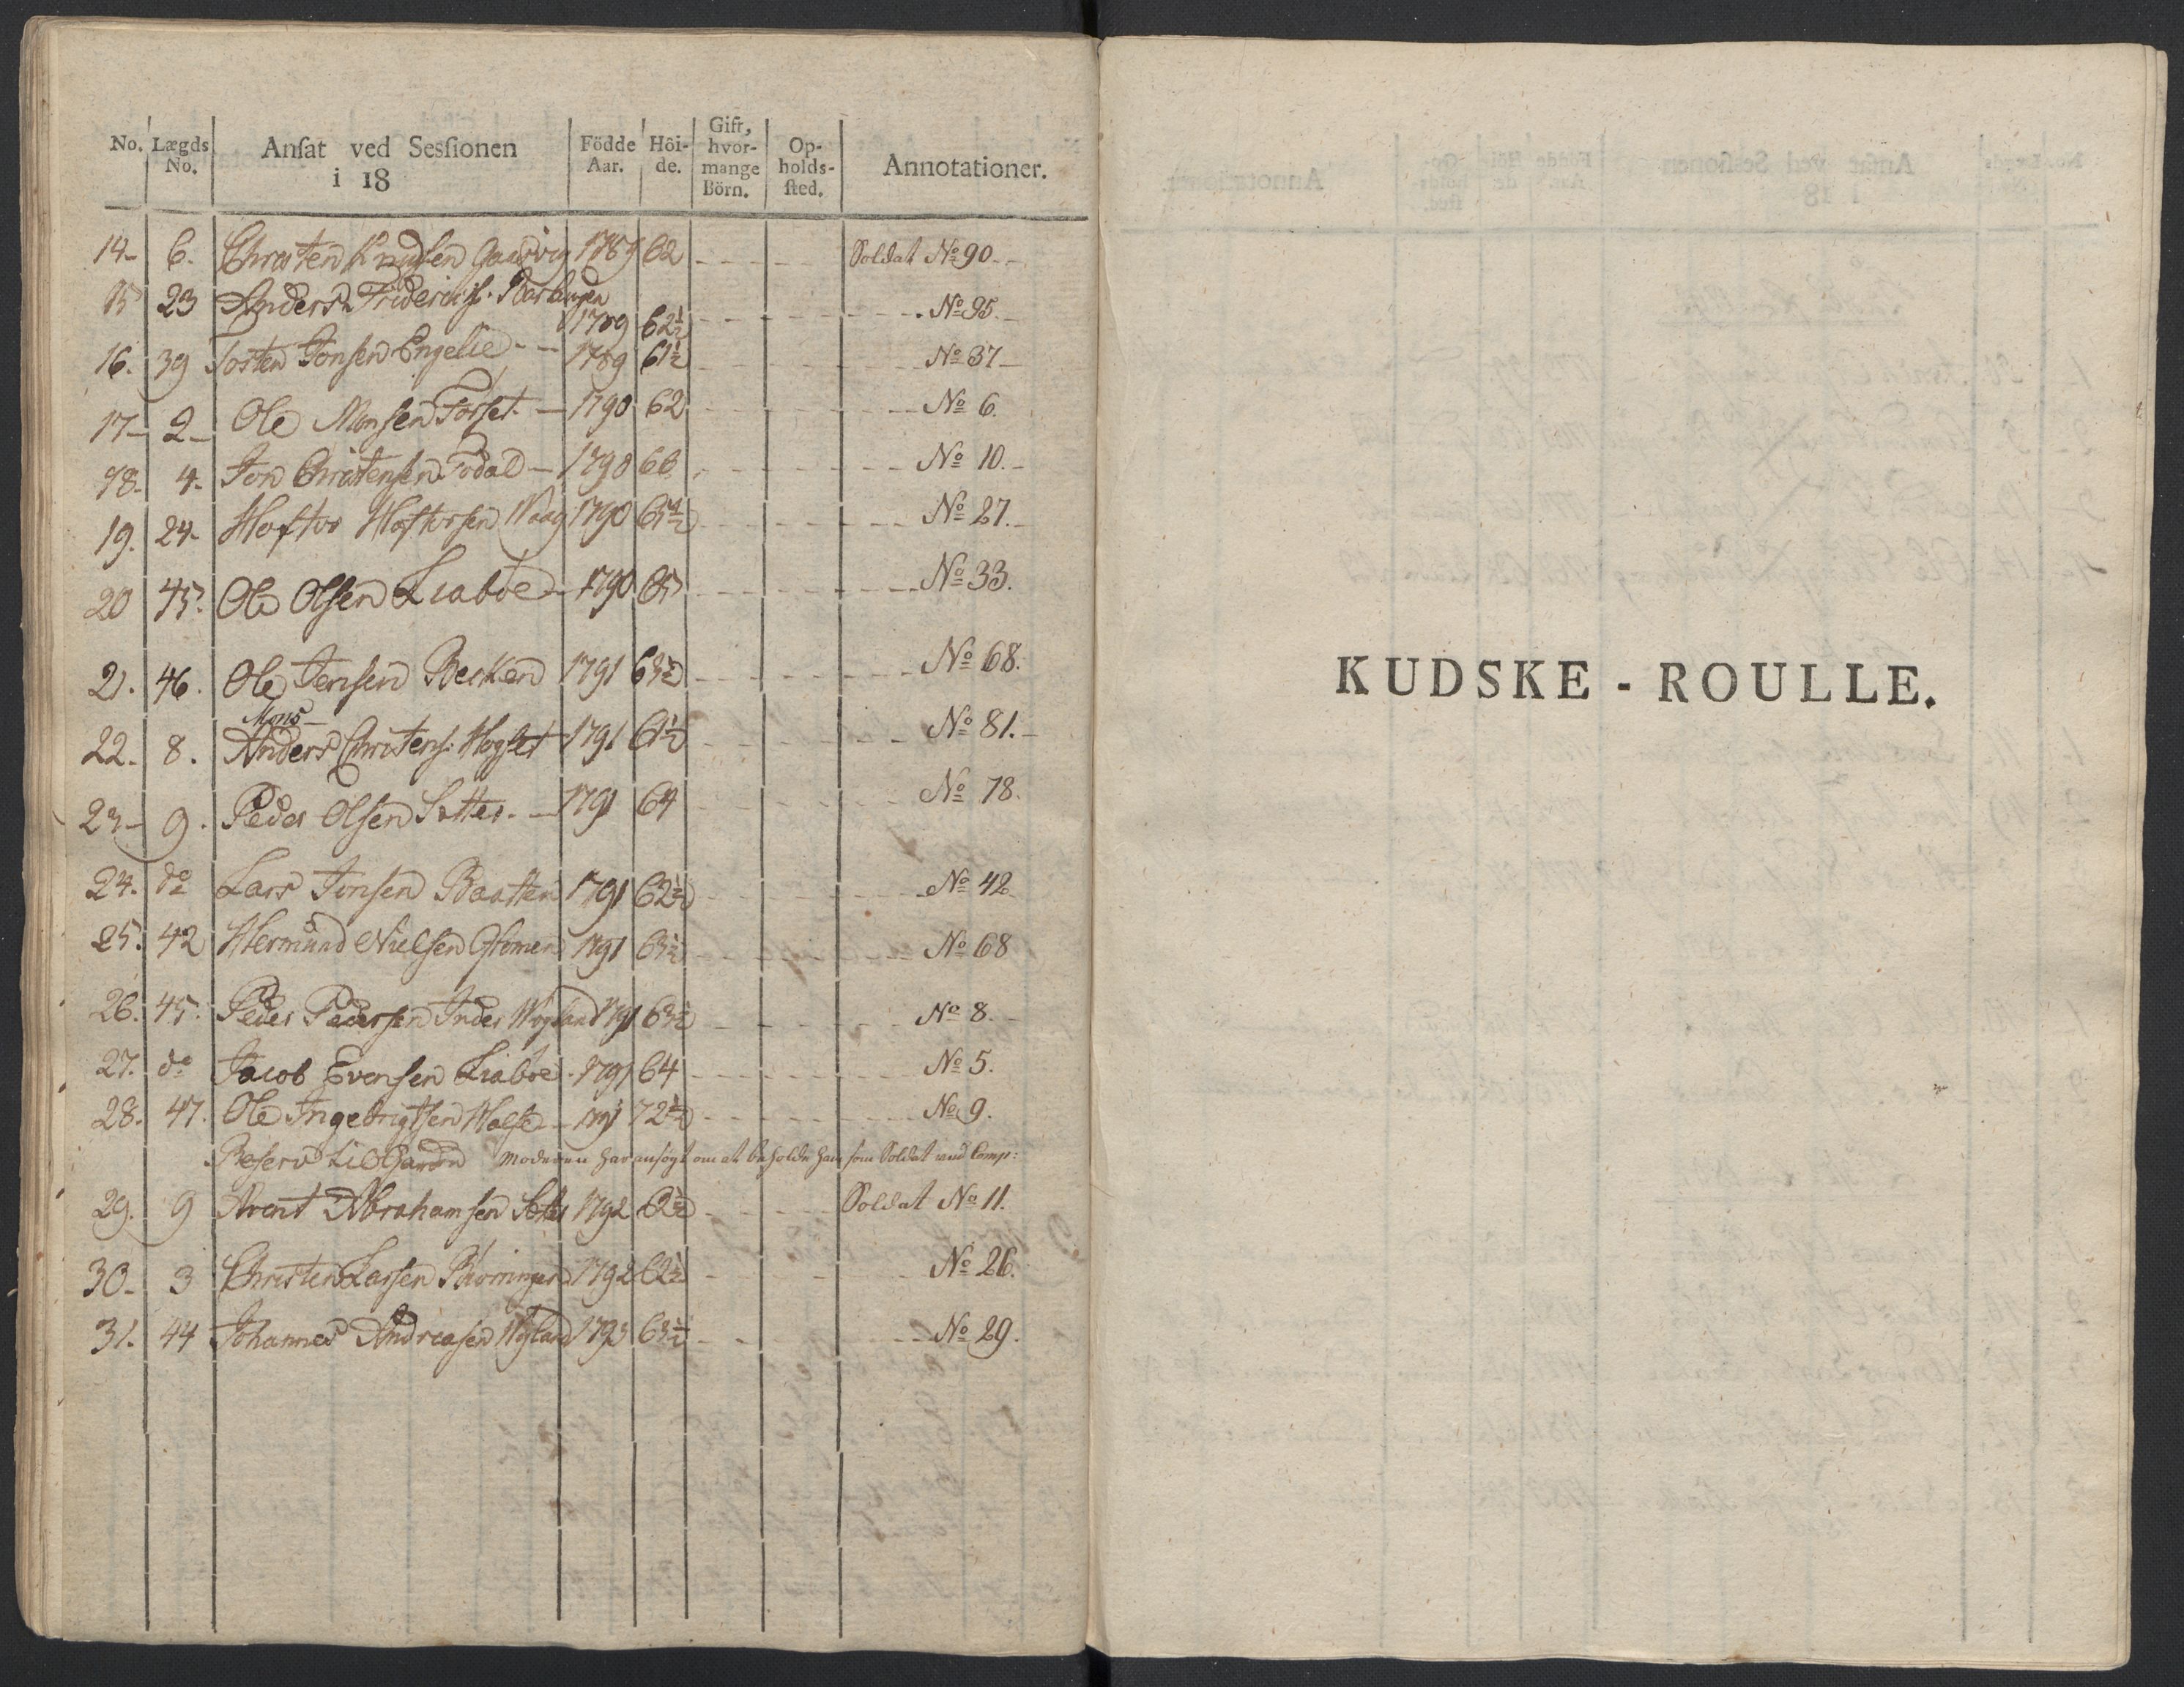 No. Lægds No. Ansat ved Sessionen i 18 Födde Aar. Höi-de. Gift, hvor-mange Börn. Op-holds-sted. Annotationer.
14- 6. Christen Knudsen Gaasvig 1789 62 Soldat No 90.
15 23 Anders Friderichs. Barhugen 1789 62½ No 95.
16. 39 Torsten Jonsen Engelie 1789 61½ No 37
17- 2- Ole Monsen Torset 1790 62 No 6.
18. 4. Jon Christensen Todal 1790 66 No 10.
19. 24- Hoftor Hoftorsen Waag 1790 No 27.
20 45. Ole Olsen Liaböe 1790 65 No 33.
21. 46. Ole Jensen Becken 1791 63½ No 68.
Mons
22. 8. Anders Christens. Hogset 1791 61½ No 81.
23- 9. Peder Olsen Setter 1791 64 No 78.
24. do Lars Jonsen Baatten 1791 62½ No 42
25. 42 Hermund Nielsen Glomen 1791 63½ No 68
26. 45. Peder Pedersen Inder Wogland 1791 63½ No 8.
27. do Jacob Evensen Liaböe 1791 64 No 5.
28. 47. Ole Ingebrigtsen Halse 1791 72½ No 9.
Reserv til Garden Moderen har ansögt om at beholde ham som Soldat ved Comp:
29. 9 Arent Abrahamsen Setter 1792 62½ Soldat No 11.
30- 3 Christen Larsen 1792 62½ No 26.
31. 44 Johannes Andreasen Wogland 1793 63½ No 29.
KUDSKE - ROULLE.